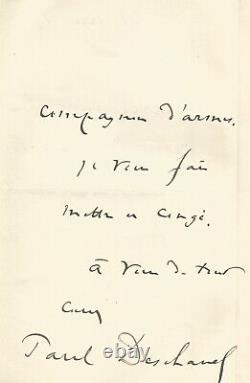 compagnon d'armes.
je vous fais
mettre en congé.
à vous de tout
cœur
Paul Deschanel